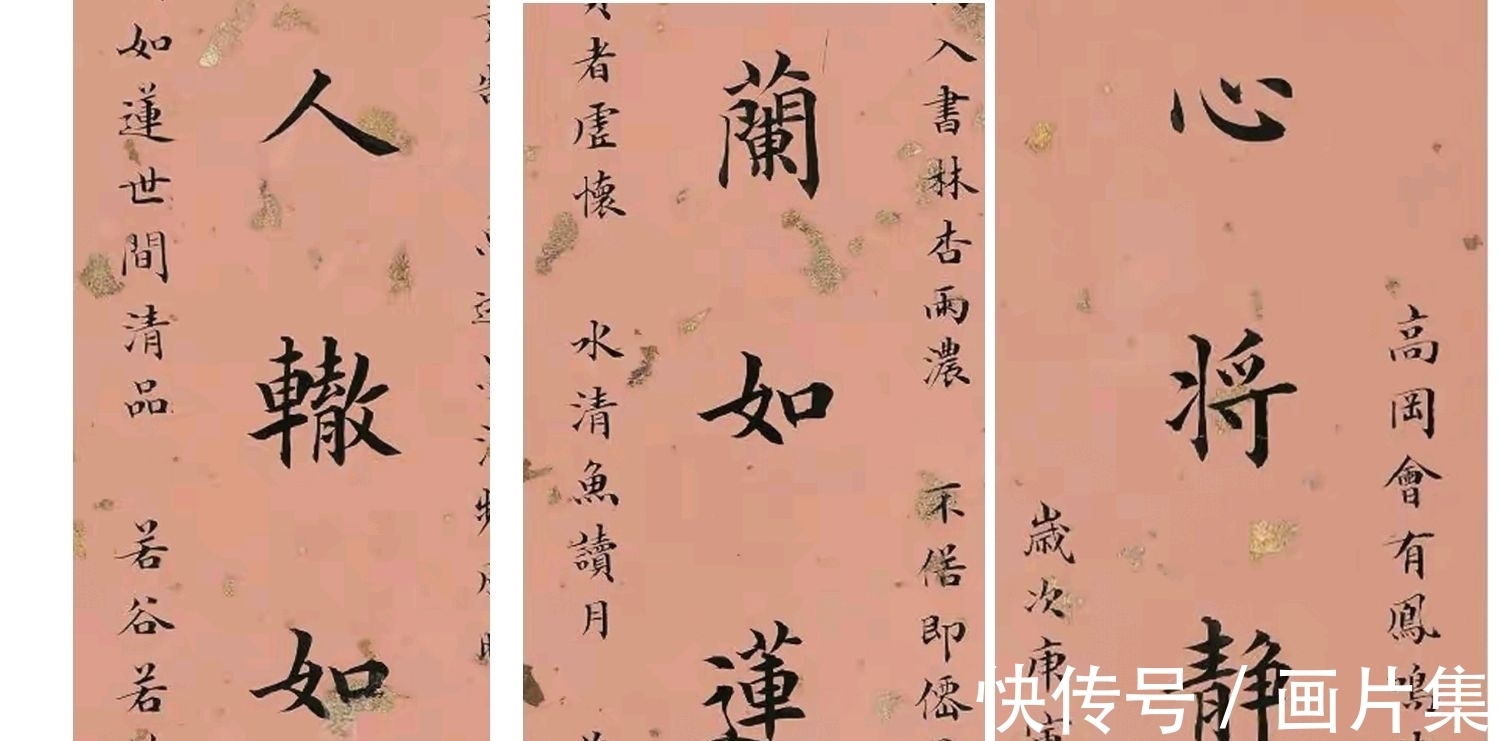 高岡會有鳳鳴
心将靜
歲次庚
入書林杏雨濃 不俗即僊
蘭如蓮
者虛懷 水清魚讀月
人轍如
如蓮世間清品 若谷若
快传号 / 画片集